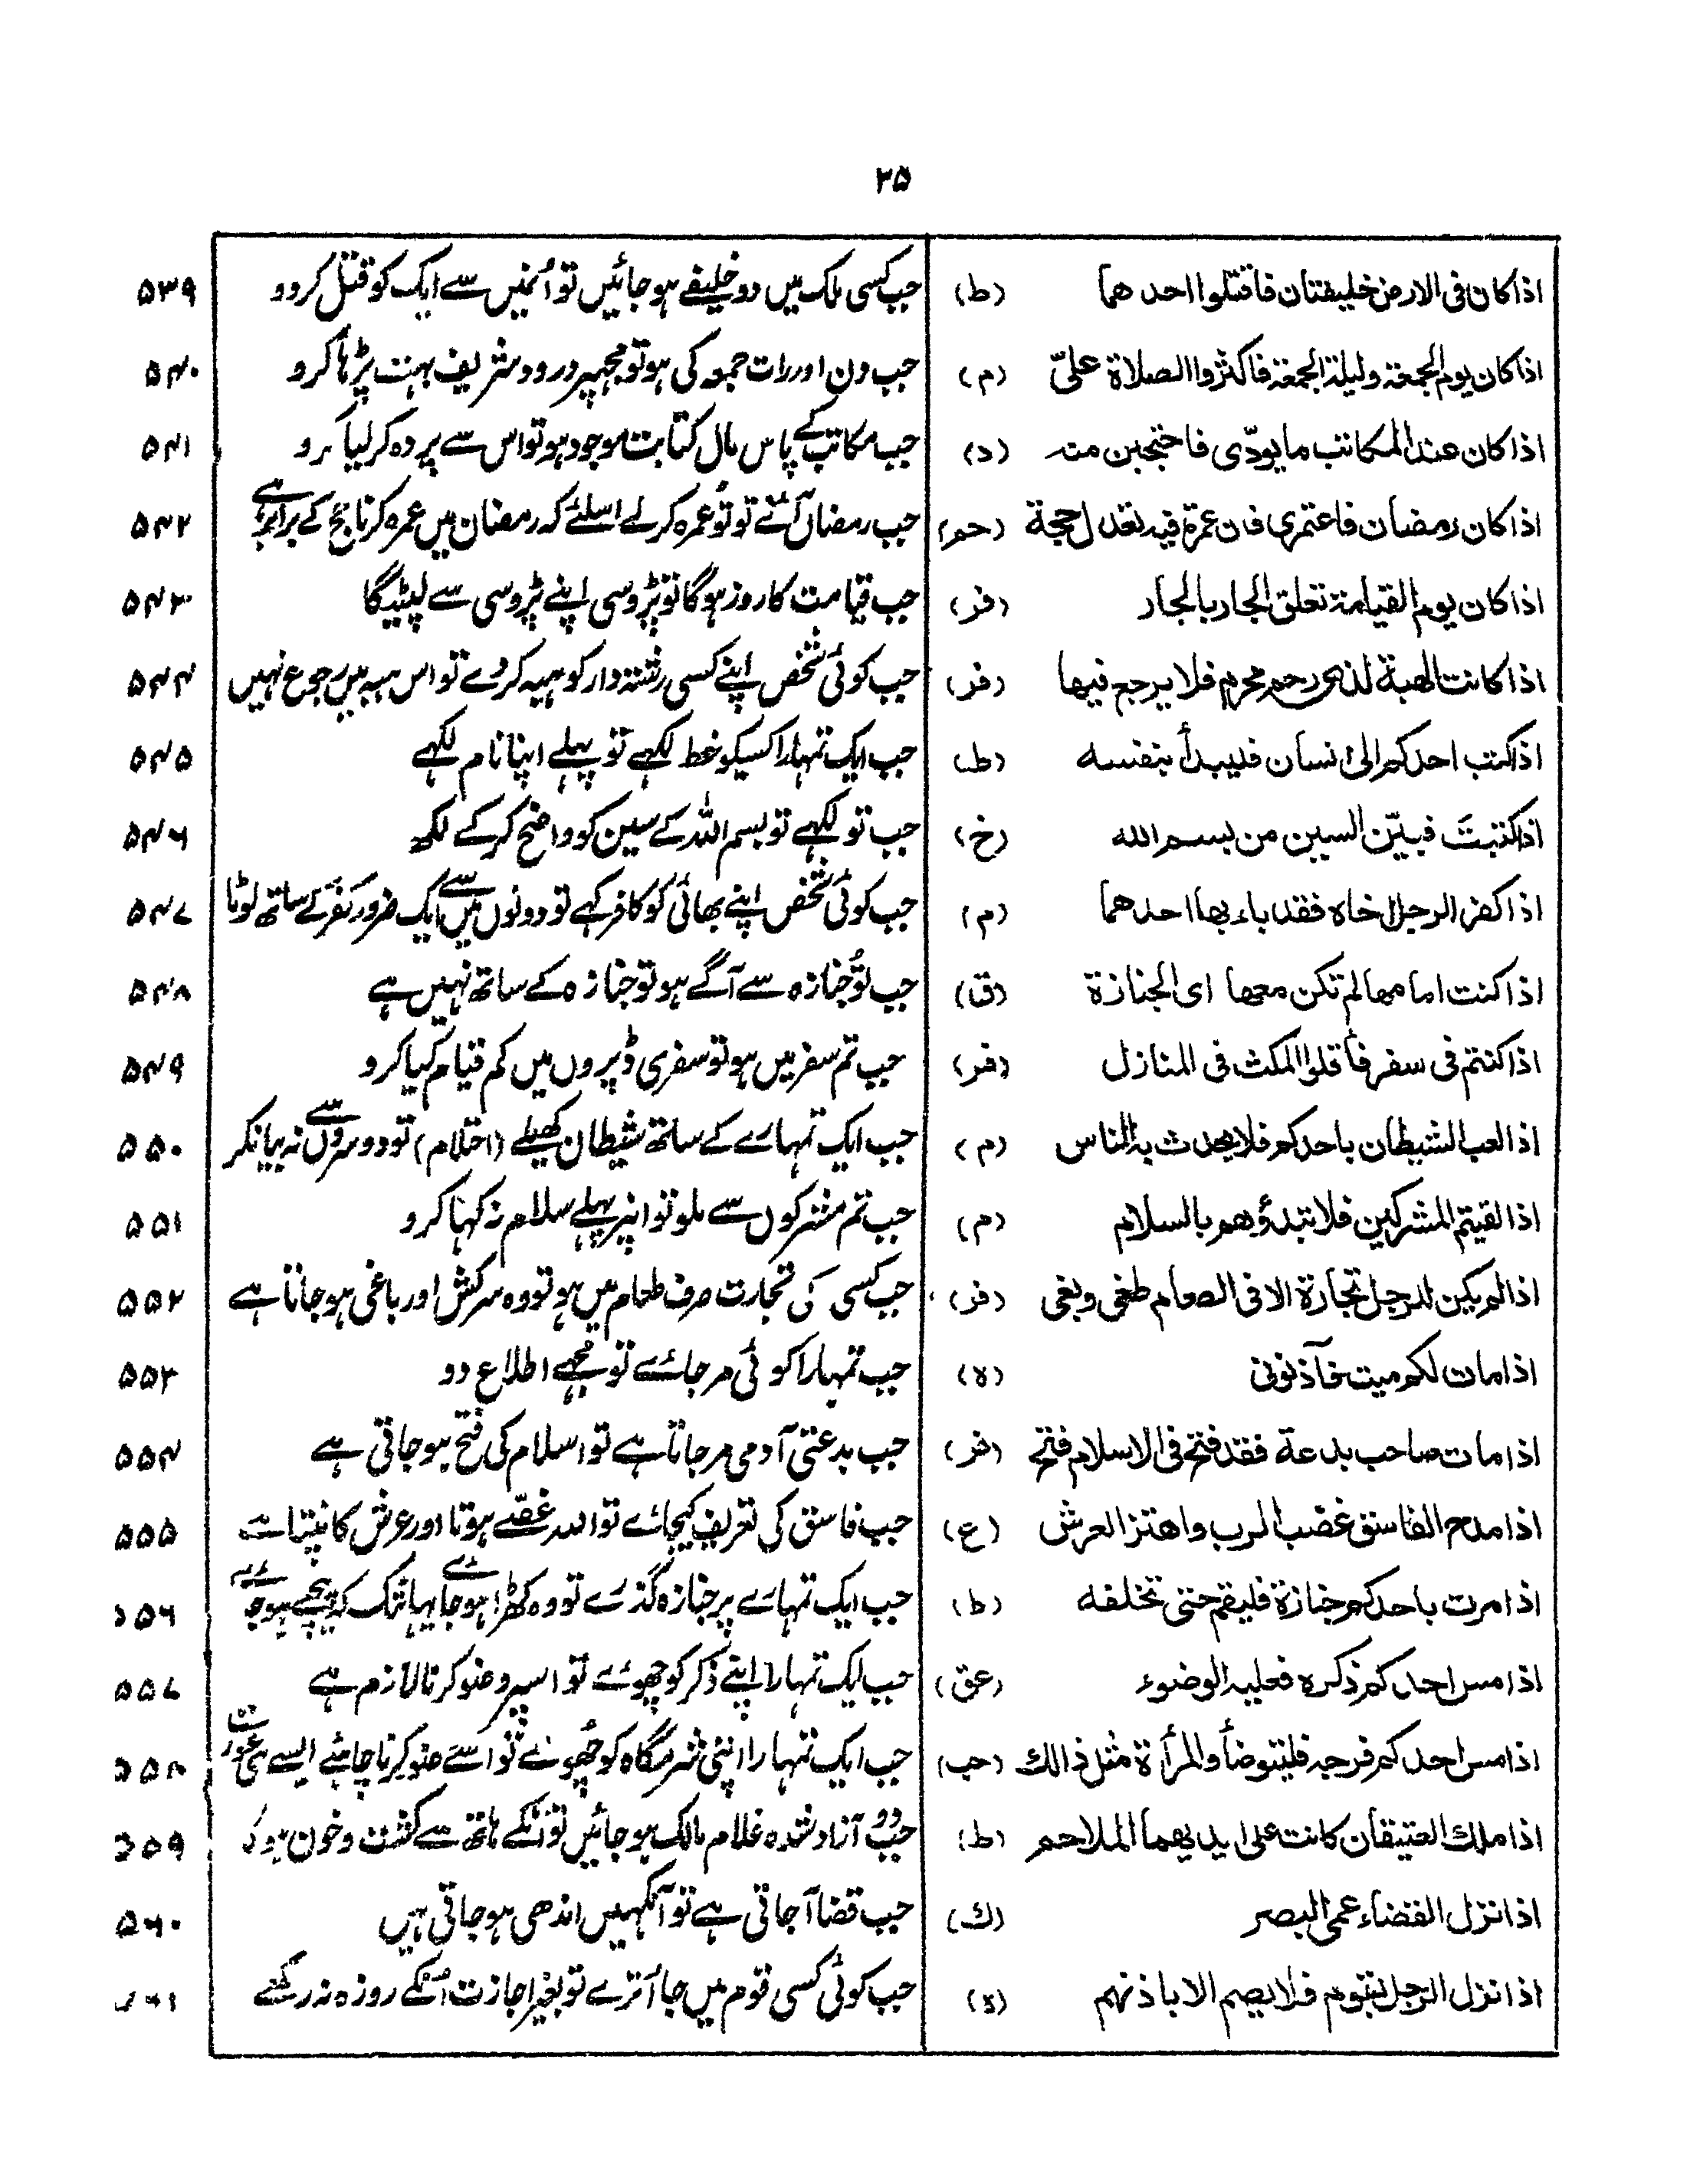 ۲۵
اذا کان فی الارض خلیفتان فاقتلوا احدهما (ط) جب کسی ملک میں دو خلیفے ہو جائیں تو اُنمیں سے ایک کو قتل کردو ۵۳۹
اذا کان یوم الجمعة ولیلة الجمعة فاکثروا الصلاة علیّ (م) جب دن اور رات جمعہ کی ہو تو مجہپر درود شریف بہت پڑہا کرو ۵۴۰
اذا کان عند المکاتب ما یودّی فاحتجبن منه (د) جب مکاتب کے پاس مال کتابت موجود ہو تو اس سے پردہ کرلیا کرو ۵۴۱
اذا کان رمضان فاعتمری فان عمرة فیه تعدل حجة (حم) جب رمضان آئے تو تُو عمرہ کرلے اسلئے کہ رمضان میں عمرہ کرنا حج کے برابر ہے ۵۴۲
اذا کان یوم القیامة تعلق الجار بالجار (فر) جب قیامت کا روز ہوگا تو پڑوسی اپنے پڑوسی سے لپٹیگا ۵۴۳
اذا کانت الهبة لذی رحم محرم فلا یرجع فیها (فر) جب کوئی شخص اپنے کسی رشتہ دار کو ہبہ کردے تو اس ہبہ میں رجوع نہیں ۵۴۴
اذا کتب احدکم الی انسان فلیبدأ بنفسه (ط) جب ایک تمہارا کسیکو خط لکہے تو پہلے اپنا نام لکہے ۵۴۵
اذا کتبتَ فبیّن السین من بسم الله (خ) جب تو لکہے تو بسم اللہ کے سین کو واضح کرکے لکہ ۵۴۶
اذا کفر الرجل اخاه فقد باء بها احدهما (م) جب کوئی شخص اپنے بھائی کو کافر کہے تو دونوں میں سے ایک ضرور کفر کے ساتھ لوٹا ۵۴۷
اذا کنت امامها لم تکن معها ای الجنازة (ق) جب تُو جنازہ سے آگے ہو تو جنازہ کے ساتھ نہیں ہے ۵۴۸
اذا کنتم فی سفر فاقلوا المکث فی المنازل (فر) جب تم سفر میں ہو تو سفری ڈیروں میں کم قیام کیا کرو ۵۴۹
اذا لعب الشیطان باحدکم فلا یحدث به الناس (م) جب ایک تمہارے کے ساتھ شیطان کھیلے (احتلام) تو دوسروں سے نہ بیانکر ۵۵۰
اذا لقیتم المشرکین فلا تبدؤهم بالسلام (م) جب تم مشرکوں سے ملو تو انپر پہلے سلام نہ کہا کرو ۵۵۱
اذا لم یکن للرجل تجارة الا فی الطعام طغی وبغی (فر) جب کسی کی تجارت صرف طعام میں ہو تو وہ سرکش اور باغی ہو جاتا ہے ۵۵۲
اذا مات لکم میت فآذنونی (ہ) جب تمہارا کوئی مرجائے تو مجھے اطلاع دو ۵۵۳
اذا مات صاحب بدعة فقد فتح فی الاسلام فتح (فر) جب بدعتی آدمی مرجاتا ہے تو اسلام کی فتح ہو جاتی ہے ۵۵۴
اذا مدح الفاسق غضب الرب واهتز العرش (ع) جب فاسق کی تعریف کیجائے تو اللہ غصّے ہوتا اور عرش کانپتا ہے ۵۵۵
اذا مرت باحدکم جنازة فلیقم حتی تخلفه (ط) جب ایک تمہارے پر جنازہ گذرے تو وہ کھڑا ہو جائے یہانتک کہ پیچھے ہو جائے ۵۵۶
اذا مس احدکم ذکره فعلیه الوضوء (عق) جب ایک تمہارا اپنے ذکر کو چھوئے تو اسپر وضو کرنا لازم ہے ۵۵۷
اذا مس احدکم فرجه فلیتوضأ والمرأة مثل ذالك (حب) جب ایک تمہارا اپنی شرمگاہ کو چھُوئے تو اسے وضو کرنا چاہئے ایسے ہی عورت ۵۵۸
اذا ملك العتیقان کانت علی ایدیهما الملاحم (ط) جب دو آزاد شدہ غلام مالک ہو جائیں تو اُنکے ہاتھ سے کشت و خون ہوگا ۵۵۹
اذا نزل القضاء عمی البصر (ك) جب قضا آجاتی ہے تو آنکہیں اندھی ہو جاتی ہیں ۵۶۰
اذا نزل الرجل بقوم فلا یصم الا باذنهم (ہ) جب کوئی کسی قوم میں جا اُترے تو بغیر اجازت اُنکے روزہ نہ رکھے ۵۶۱